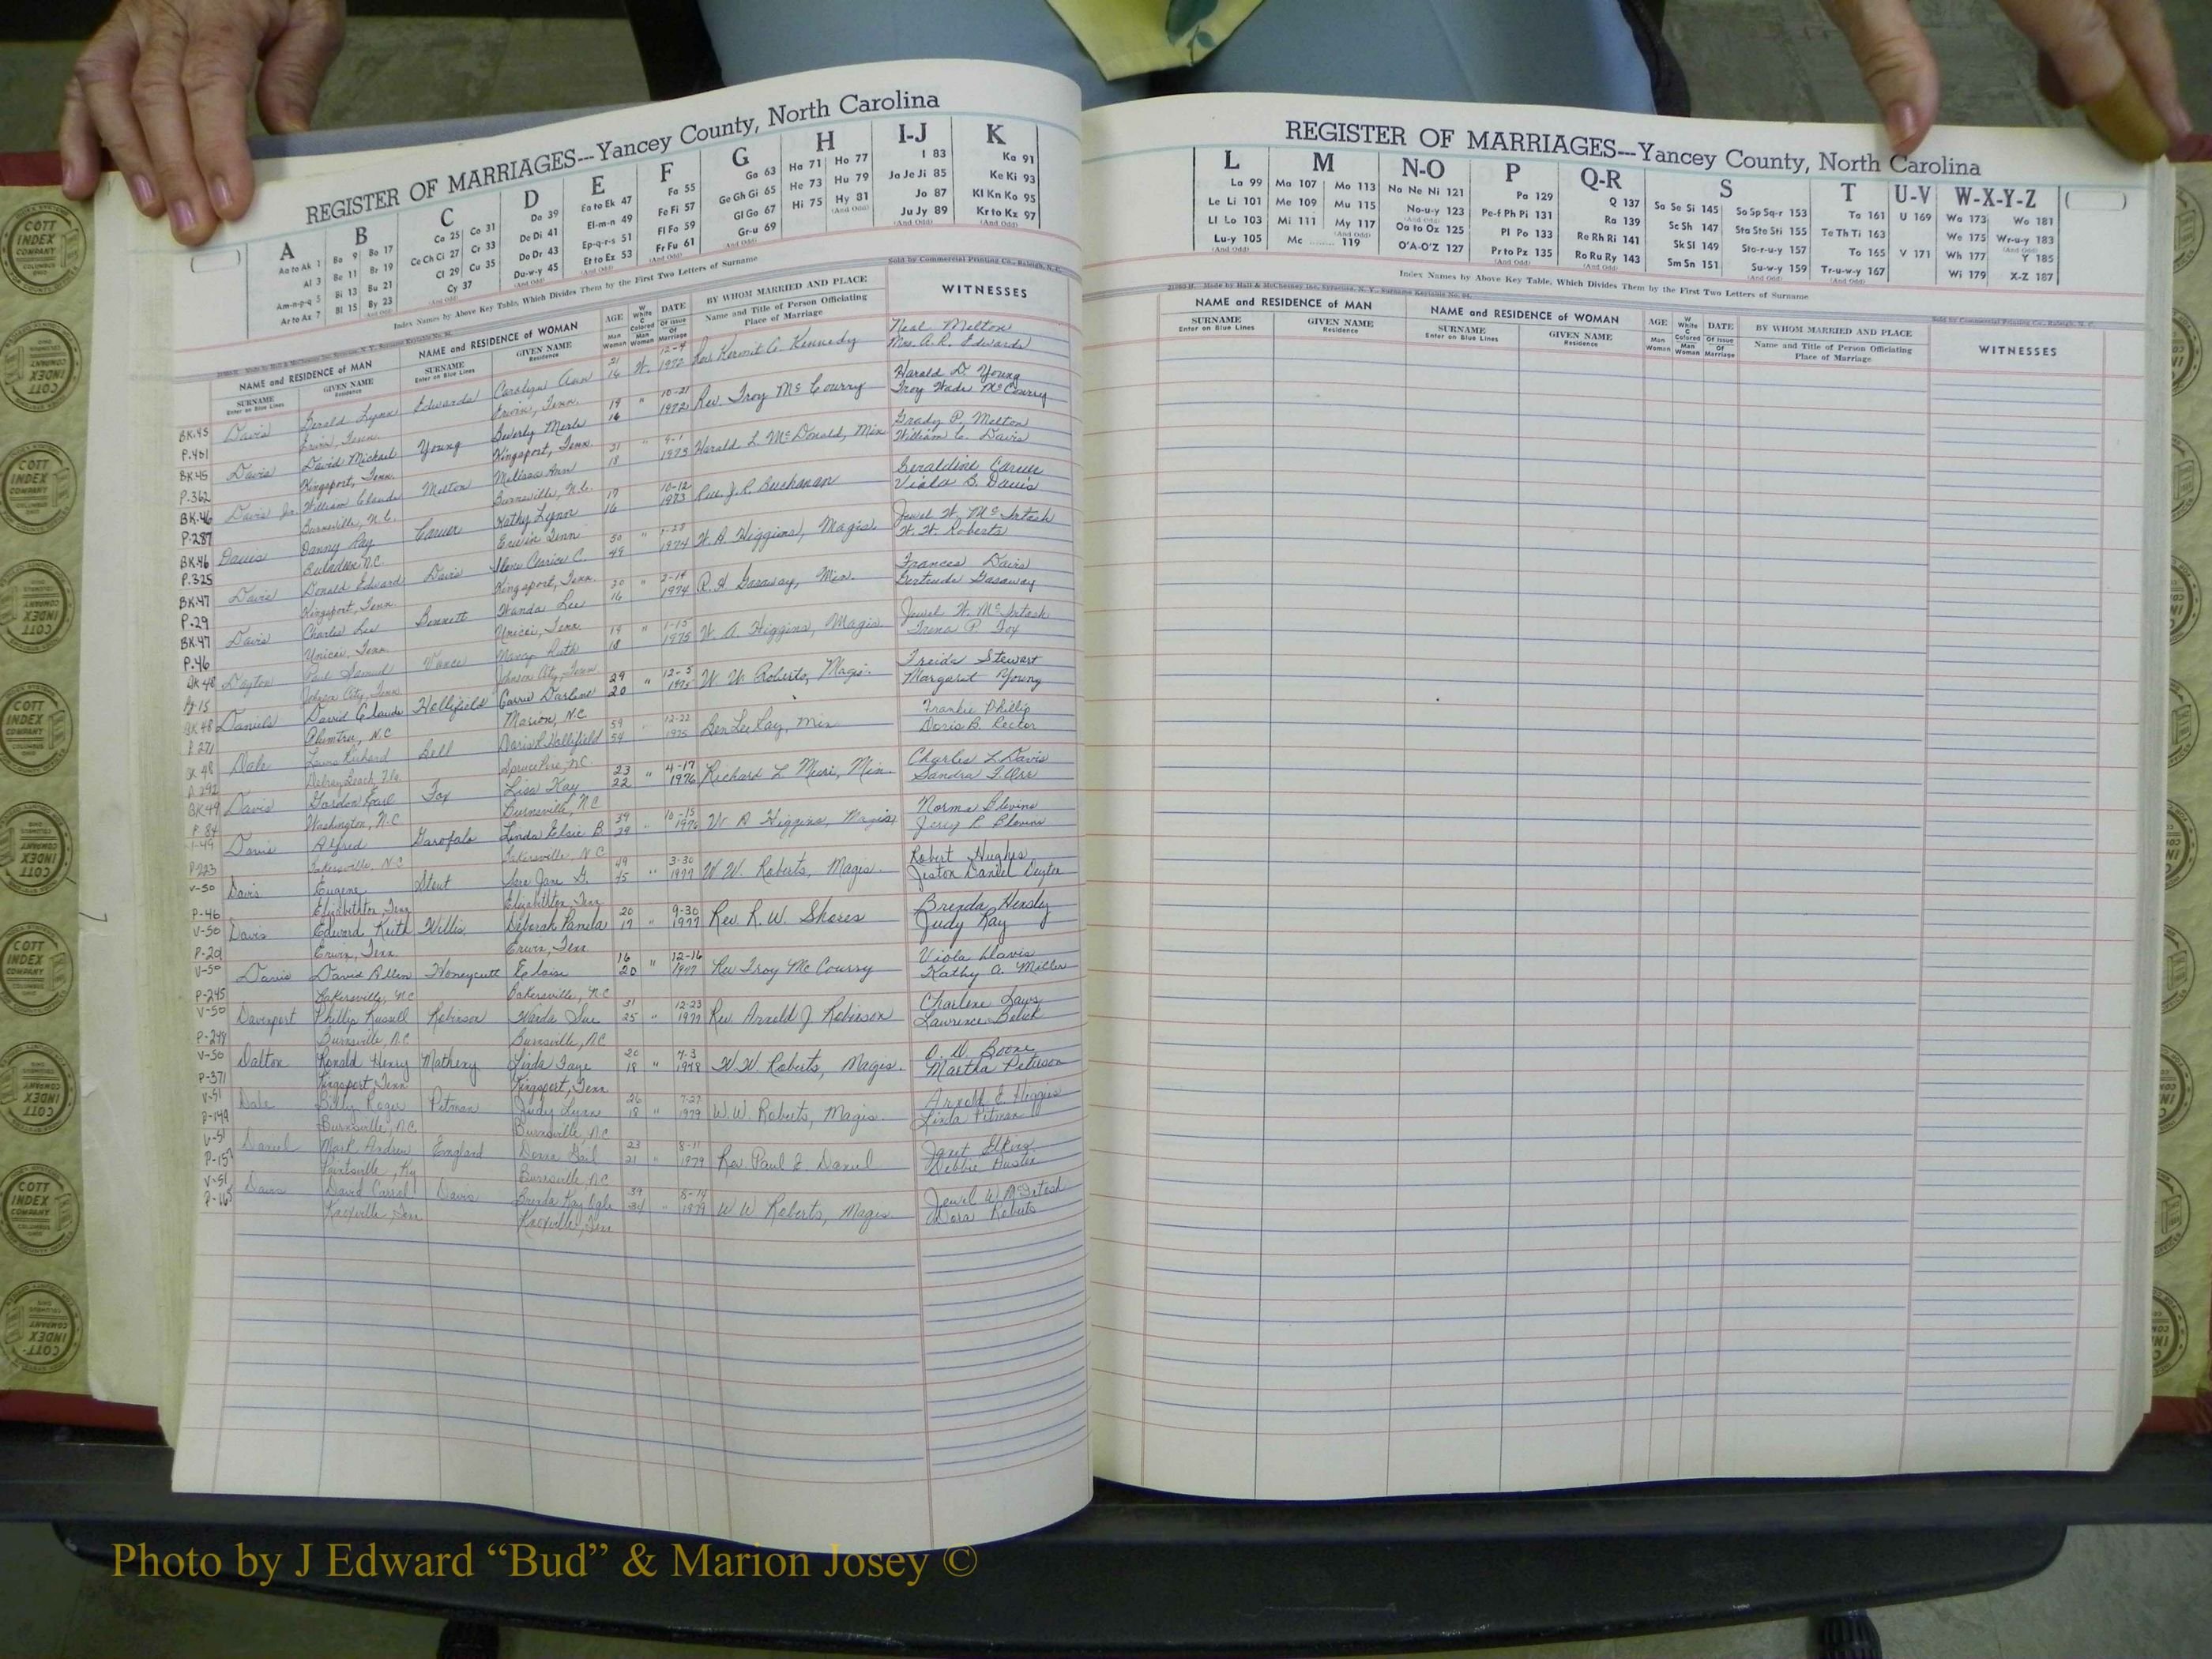 REGISTER OF MARRIAGES---Yancey County, North Carolina
A B C D E F G H I-J K
Aa to Ak 1
Al 3
Am-n-p-q 5
Ar to Az 7
Ba 9 Bo 17
Be 11 Br 19
Bi 13 Bu 21
Bl 15 By 23
Ca 25 Co 31
Ce Ch Ci 27 Cr 33
Cl 29 Cu 35
Cy 37
Da 39
De Di 41
Do Dr 43
Du-w-y 45
Ea to Ek 47
El-m-n 49
Ep-q-r-s 51
Et to Ez 53
Fa 55
Fe Fi 57
Fl Fo 59
Fr Fu 61
Ga 63
Ge Gh Gi 65
Gl Go 67
Gr-u 69
Ha 71 Ho 77
He 73 Hu 79
Hi 75 Hy 81
I 83
Ja Je Ji 85
Jo 87
Ju Jy 89
Ka 91
Ke Ki 93
Kl Kn Ko 95
Kr to Kz 97
Index Names by Above Key Table, Which Divides Them by the First Two Letters of Surname
Sold by Commercial Printing Co., Raleigh, N. C.
NAME and RESIDENCE of MAN NAME and RESIDENCE of WOMAN AGE DATE BY WHOM MARRIED AND PLACE WITNESSES
SURNAME GIVEN NAME SURNAME GIVEN NAME Name and Title of Person Officiating
Enter on Blue Lines Residence Enter on Blue Lines Residence Place of Marriage
BK.45 Davis Gerald Lynn Edwards Carolyn Ann 21 W. 12-9 Rev Kermit C. Kennedy Neal Melton
P.401 Erwin, Tenn. Erwin, Tenn. 16 1972 Mrs. A.R. Edwards
BK45 Davis David Michael Young Beverly Merle 19 " 10-21 Rev. Troy McCourry Harold D. Young
P.362 Kingsport, Tenn. Kingsport, Tenn. 16 1972 Troy Wade McCourry
BK.46 Davis Jr. William Claude Melton Melissa Ann 21 " 9-1 Harold L. McDonald, Min Grady P. Melton
P.287 Burnsville, N.C. Burnsville, N.C. 18 1973 William C. Davis
BK.46 Davis Danny Ray Carver Kathy Lynn 17 10-12 Rev. J.R. Buchanan Geraldine Carver
P.325 Erwin Tenn 16 1973 Viola B. Davis
BK.47 Davis Donald Edward Davis Clarice C. 50 " W. A. Higgins, Magis. Jewel W. McIntosh
P.29 Kingsport, Tenn. Kingsport, Tenn. 49 1974 W. W. Roberts
BK.47 Davis Charles Lee Bennett Wanda Lee 20 " 2-14 Gasaway, Min. Frances Davis
P.46 Unicoi, Tenn Unicoi, Tenn 16 1974 Gertrude Gasaway
BK 48 Dayton Paul Samuel Vance Nancy Ruth 19 " 1-15 W. A. Higgins, Magis. Jewel W. McIntosh
P-15 Johnson City, Tenn Johnson City, Tenn 18 1975 Trena P. Fox
BK 48 Daniels David Claude Hollifield Carrie Darlene 29 " 12-5 W. W. Roberts, Magis. Freida Stewart
P.271 Plumtree, N.C Marion, N.C. 20 1975 Margaret Young
BK 48 Dale Richard Bell Doris R. Hollifield 59 12-22 Ben Lee Ray, Min Frankie Phillip
P.292 Delray Beach, Fla. Spruce Pine, N.C. 54 1975 Doris B. Rector
BK 49 Davis Gordon Earl Fox Lisa Kay 23 " 4-17 Richard L. Min. Charles L. Davis
P.84 Washington, N.C Burnsville, N.C 22 1976 Sandra F. Orr
Davis Alfred Garofalo Linda Elsie B. 39 " 10-15 W. A. Higgins, Magis. Norma Blevins
P-223 Bakersville, N.C Bakersville, N.C 29 1976 Jerry P. Blevins
V-50 Davis Eugene Stout Jane G. 49 " 3-30 W. W. Roberts, Magis. Robert Hughes
P-46 Elizabethton, Tenn Elizabethton, Tenn 45 1977 Daniel Deyton
V-50 Davis Edward Keith Willis Deborah Pamela 20 " 9-30 Rev. R. W. Shores Brenda Hensly
Erwin, Tenn. Erwin, Tenn 17 1977 Judy Ray
V-50 Davis David Allen Honeycutt Eloise 16 " 12-16 Rev Troy McCourry Viola Davis
P-245 Bakersville, N.C Bakersville, N.C 20 1977 Kathy A. Miller
V-50 Davenport Phillip Russell Robinson Wanda Sue 31 " 12-23 Rev. Arnold J. Robinson Charlene Laws
Burnsville, N.C Burnsville, N.C 25 1977 Lawrence
V-50 Dalton Ronald Henry Matheny Linda Faye 20 " 7-3 W. W. Roberts, Magis. O. D. Boone
P-371 Kingsport, Tenn Kingsport, Tenn 18 1978 Martha Peterson
V-51 Dale Billy Roger Pitman Judy Lynn 26 " 7-27 W. W. Roberts, Magis. Arnold E. Higgins
P-149 Burnsville, N.C. Burnsville, N.C 18 1979 Linda Pitman
V-51 Daniel Mark Andrew England Donna Gail 23 " 8-11 Rev. Paul E Daniel Janet Elkins
Paintsville, Ky Burnsville, N.C 21 1979 Debbie Austin
V-51 Davis David Carrol Davis Brenda Kay Ogle 39 " 8-14 W W Roberts, Magis. Jewel W McIntosh
Knoxville, Tenn Knoxville, Tenn 34 1979 Dora Roberts
REGISTER OF MARRIAGES---Yancey County, North Carolina
L M N-O P Q-R S T U-V W-X-Y-Z
La 99
Le Li 101
Ll Lo 103
Lu-y 105
Ma 107 Mo 113
Me 109 Mu 115
Mi 111 My 117
Mc 119
Na Ne Ni 121
No-u-y 123
Oa to Oz 125
O'A-O'Z 127
Pa 129
Pe-f Ph Pi 131
Pl Po 133
Pr to Pz 135
Q 137
Ra 139
Re Rh Ri 141
Ro Ru Ry 143
Sa Se Si 145 So Sp Sq-r 153
Sc Sh 147 Sta Ste Sti 155
Sk Sl 149 Sto-r-u-y 157
Sm Sn 151 Su-w-y 159
Ta 161
Te Th Ti 163
To 165
Tr-u-w-y 167
U 169
V 171
Wa 173 Wo 181
We 175 Wr-u-y 183
Wh 177 Y 185
Wi 179 X-Z 187
Index Names by Above Key Table, Which Divides Them by the First Two Letters of Surname
NAME and RESIDENCE of MAN NAME and RESIDENCE of WOMAN AGE DATE BY WHOM MARRIED AND PLACE WITNESSES
SURNAME GIVEN NAME SURNAME GIVEN NAME Name and Title of Person Officiating
Enter on Blue Lines Residence Enter on Blue Lines Residence Place of Marriage
COTT INDEX COMPANY COLUMBUS OHIO
Photo by J Edward “Bud” & Marion Josey ©